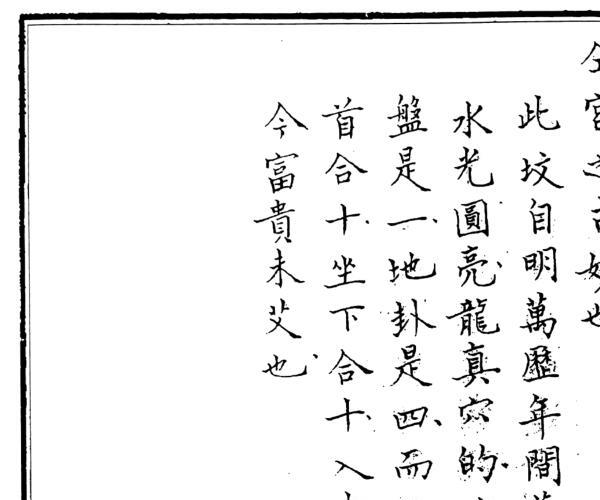 此坟自明萬歷年間
水光圓亮龍真穴的
盤是一地卦是四而
首合十坐下合十入
今富貴未艾也